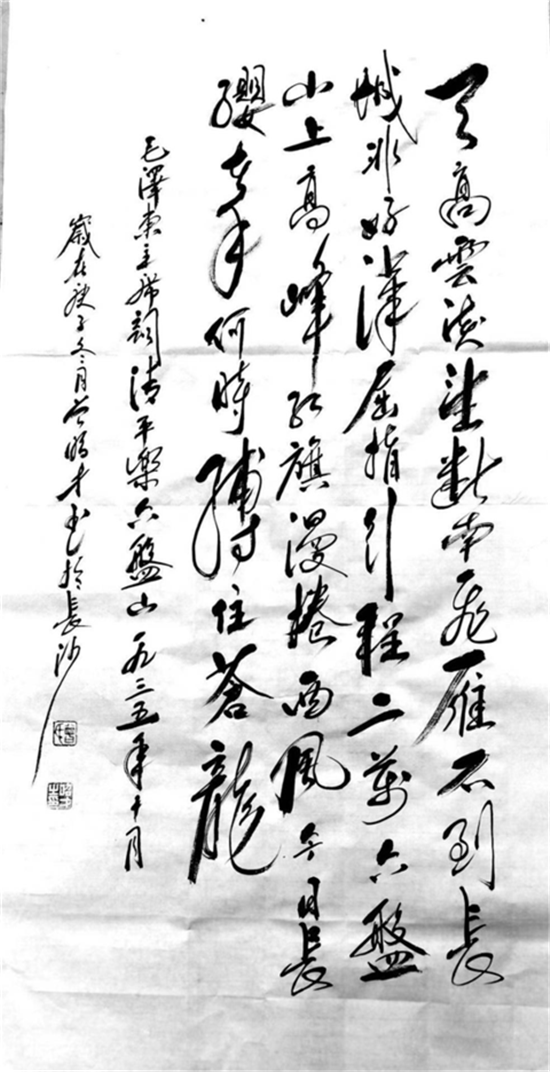 天高雲淡望斷南飛雁不到長
城非好漢屈指行程二萬六盤
山上高峰紅旗漫捲西風今日長
纓在手何時縛住蒼龍
毛澤東主席詞清平樂六盤山一九三五年十月
歲在庚子冬月才书於長沙